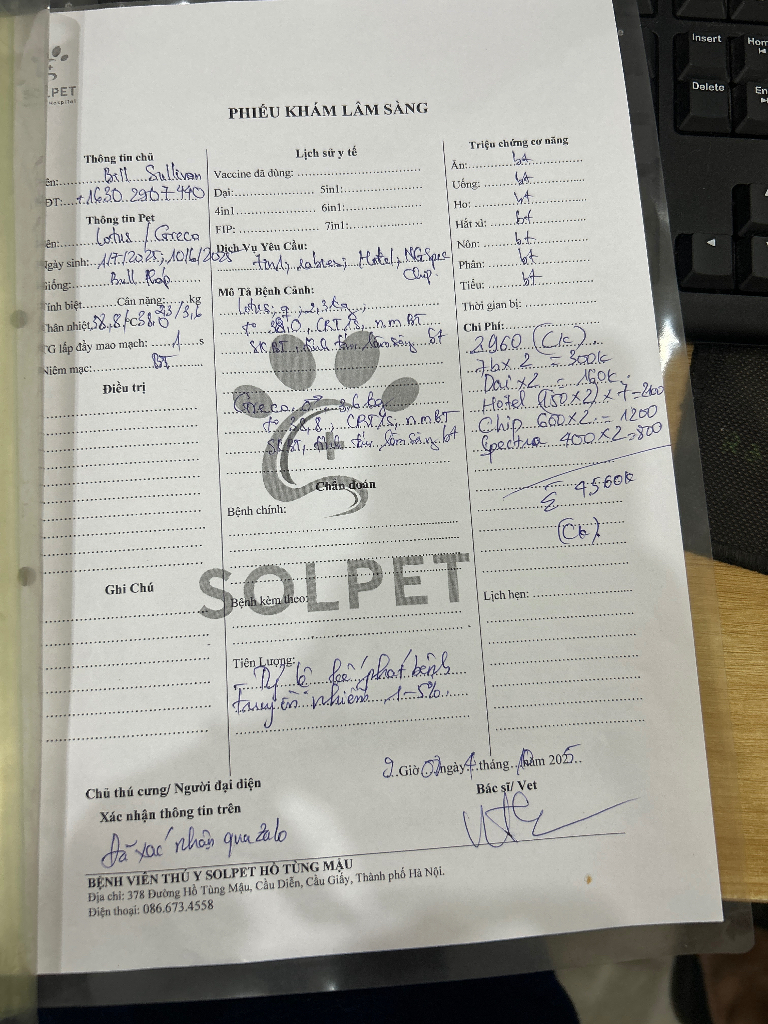 SOLPET
.PET
Hospital
Insert
Home
Delete
En
PHIẾU KHÁM LÂM SÀNG
Thông tin chủ
ên: Bill Sullivan
ĐT: +1630.2907.440
Thông tin Pet
ên: Lotus / Greco
Ngày sinh: 1/7/2025, 10/6/2025
Giống: Bull
Tính biệt Cân nặng: kg
2,3/3,6
Thân nhiệt 38,8/ 38,0
TG lấp đầy mao mạch: 1 s
Niêm mạc: BT
Điều trị
Ghi Chú
Lịch sử y tế
Vaccine đã dùng:
Dại: 5in1:
4in1 6in1:
FIP: 7in1:
Dịch Vụ Yêu Cầu:
7in1, rabies, Hotel, NG Spec
Chip
Mô Tả Bệnh Cảnh:
Lotus, ♀, 2,3kg,
t° 38,0, CRT 1s, nmBT
SKBT, lâm sàng bt
Greco ♂ 3,6 kg
t° 38,8, CRT 1s, nmBT
SKBT, lâm sàng bt
Chẩn đoán
Bệnh chính:
SOLPET
Bệnh kèm theo:
Tiên Lượng:
- Tỷ lệ kế phát bệnh
truyền nhiễm 1-5%
Triệu chứng cơ năng
Ăn: bt
Uống: bt
Ho: bt
Hắt xì: bt
Nôn: bt
Phân: bt
Tiểu: bt
Thời gian bị:
Chi Phí:
2960 (Ck)
7b x 2 = 300k
Dại x 2 = 160k
Hotel (150x2) x 7 = 2100
Chip 600x2 = 1200
Spectra 400x2 = 800
Σ 4560k
(Ck)
Lịch hẹn:
2 Giờ 0 ngày 4 tháng năm 2025
Chủ thú cưng/ Người đại diện
Xác nhận thông tin trên
Đã xác nhận qua zalo
Bác sĩ/ Vet
BỆNH VIỆN THÚ Y SOLPET HỒ TÙNG MẬU
Địa chỉ: 378 Đường Hồ Tùng Mậu, Cầu Diễn, Cầu Giấy, Thành phố Hà Nội.
Điện thoại: 086.673.4558